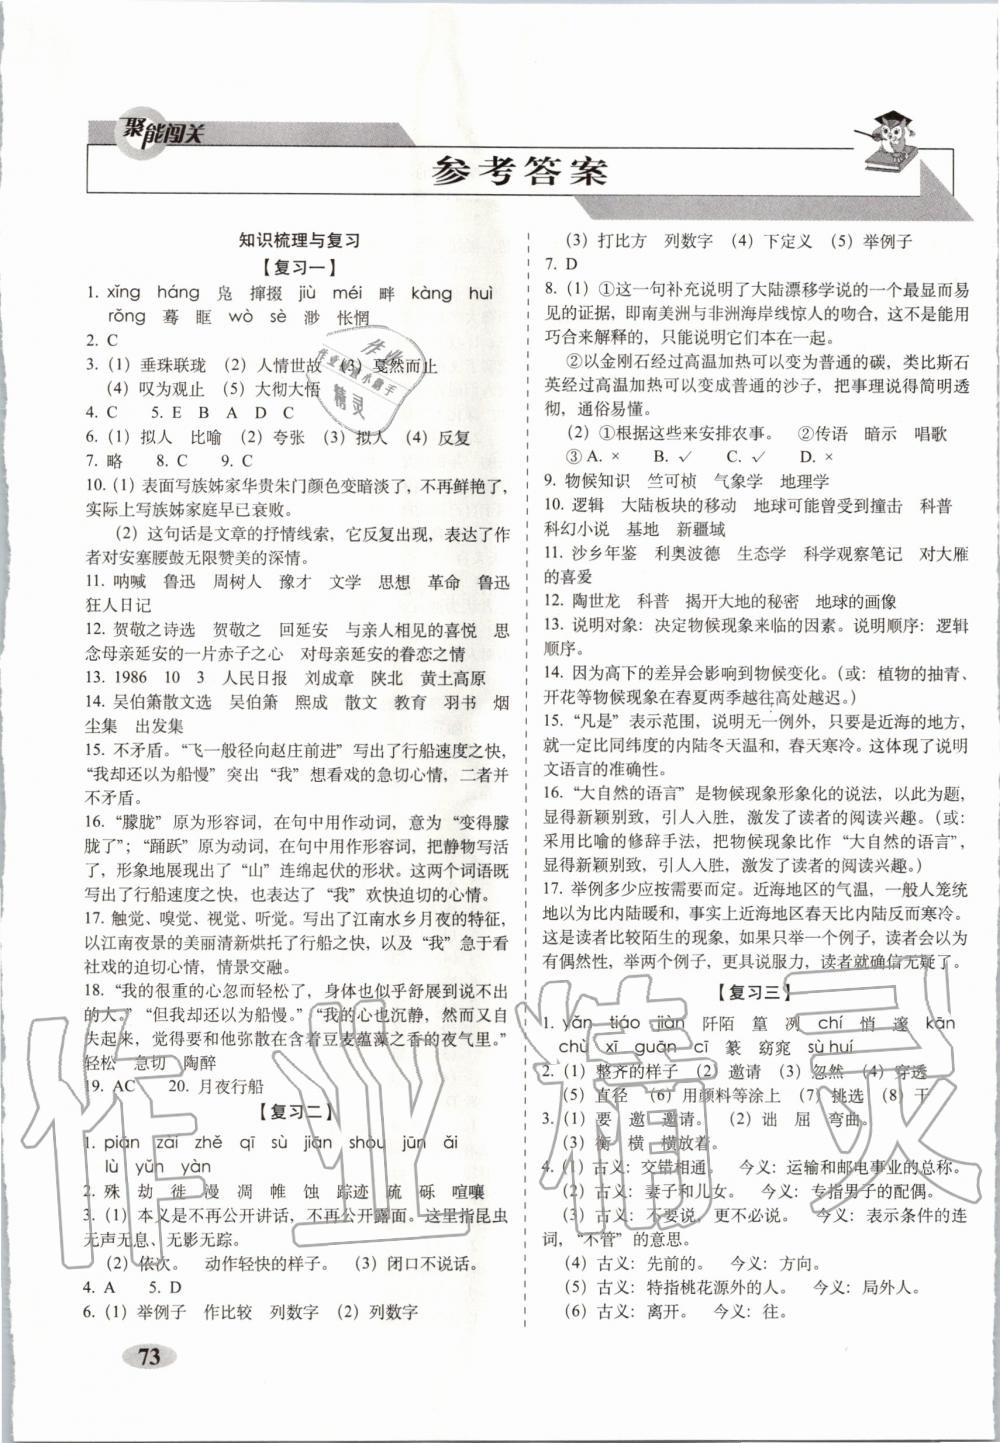 聚能闯关
参考答案
知识梳理与复习
【复习一】
1. xǐng háng 凫 撺掇 jiù méi 畔 kàng huì
rǒng 蓦 眶 wò sè 渺 怅惘
2. C
3. (1) 垂珠联珑 (2) 人情世故 (3) 戛然而止
(4) 叹为观止 (5) 大彻大悟
4. C 5. E B A D C
6. (1) 拟人 比喻 (2) 夸张 (3) 拟人 (4) 反复
7. 略 8. C 9. C
10. (1) 表面写族姊家华贵朱门颜色变暗淡了，不再鲜艳了，
实际上写族姊家庭早已衰败。
(2) 这句话是文章的抒情线索，它反复出现，表达了作
者对安塞腰鼓无限赞美的深情。
11. 呐喊 鲁迅 周树人 豫才 文学 思想 革命 鲁迅
狂人日记
12. 贺敬之诗选 贺敬之 回延安 与亲人相见的喜悦 思
念母亲延安的一片赤子之心 对母亲延安的眷恋之情
13. 1986 10 3 人民日报 刘成章 陕北 黄土高原
14. 吴伯箫散文选 吴伯箫 熙成 散文 教育 羽书 烟
尘集 出发集
15. 不矛盾。“飞一般径向赵庄前进”写出了行船速度之快，
“我却还以为船慢”突出“我”想看戏的急切心情，二者并
不矛盾。
16. “朦胧”原为形容词，在句中用作动词，意为“变得朦
胧了”；“踊跃”原为动词，在句中用作形容词，把静物写活
了，形象地展现出了“山”连绵起伏的形状。这两个词语既
写出了行船速度之快，也表达了“我”欢快迫切的心情。
17. 触觉、嗅觉、视觉、听觉。写出了江南水乡月夜的特征，
以江南夜景的美丽清新烘托了行船之快，以及“我”急于看
社戏的迫切心情，情景交融。
18. “我的很重的心忽而轻松了，身体也似乎舒展到说不出
的大。”“但我却还以为船慢。”“我的心也沉静，然而又自
失起来，觉得要和他弥散在含着豆麦蕴藻之香的夜气里。”
轻松 急切 陶醉
19. AC 20. 月夜行船
【复习二】
1. piān zāi zhě qī sù jiān shou jūn ǎi
lù yǔn yàn
2. 殊 劫 徙 漫 凋 帷 蚀 踪迹 疏 砾 喧嚷
3. (1) 本义是不再公开讲话，不再公开露面。这里指昆虫
无声无息、无影无踪。
(2) 依次。 动作轻快的样子。 (3) 闭口不说话。
4. A 5. D
6. (1) 举例子 作比较 列数字 (2) 列数字
73
(3) 打比方 列数字 (4) 下定义 (5) 举例子
7. D
8. (1) ①这一句补充说明了大陆漂移学说的一个最显而易
见的证据，即南美洲与非洲海岸线惊人的吻合，这不能用
巧合来解释的，只能说明它们本在一起。
②以金刚石经过高温加热可以变为普通的碳，类比斯石
英经过高温加热可以变成普通的沙子，把事理说得简明透
彻，通俗易懂。
(2) ①根据这些来安排农事。 ②传语 暗示 唱歌
③ A. × B. ✓ C. ✓ D. ×
9. 物候知识 竺可桢 气象学 地理学
10. 逻辑 大陆板块的移动 地球可能曾受到撞击 科普
科幻小说 基地 新疆域
11. 沙乡年鉴 利奥波德 生态学 科学观察笔记 对大雁
的喜爱
12. 陶世龙 科普 揭开大地的秘密 地球的画像
13. 说明对象：决定物候现象来临的因素。说明顺序：逻辑
顺序。
14. 因为高下的差异会影响到物候变化。（或：植物的抽青、
开花等物候现象在春夏两季越往高处越迟。）
15. “凡是”表示范围，说明无一例外，只要是近海的地方，
就一定比同纬度的内陆冬天温和，春天寒冷。这体现了说明
文语言的准确性。
16. “大自然的语言”是物候现象形象化的说法，以此为题，
显得新颖别致，引人入胜，激发了读者的阅读兴趣。（或：
采用比喻的修辞手法，把物候现象比作“大自然的语言”，
显得新颖别致，引人入胜，激发了读者的阅读兴趣。）
17. 举例多少应按需要而定。近海地区的气温，一般人笼统
地以为与内陆暖和，事实上近海地区春天比内陆反而寒冷。
这是读者比较陌生的现象，如果只举一个例子，读者会以为
有偶然性，举两个例子，更具说服力，读者就确信无疑了。
【复习三】
1. yǎn tiáo jiàn 阡陌 篁 冽 chí 悄 邃 kān
chù xī guān cī 篆 窈窕 sù huí
2. (1) 整齐的样子 (2) 邀请 (3) 忽然 (4) 穿透
(5) 直径 (6) 用颜料等涂上 (7) 挑选 (8) 干
3. (1) 要 邀 邀请。 (2) 诎 屈 弯曲。
(3) 衡 横 横放着。
4. (1) 古义：交错相通。 今义：运输和邮电事业的总称。
(2) 古义：妻子和儿女。 今义：专指男子的配偶。
(3) 古义：不要说，更不必说。 今义：表示条件的连
词，“不管”的意思。
(4) 古义：先前的。 今义：方向。
(5) 古义：特指桃花源外的人。 今义：局外人。
(6) 古义：离开。 今义：往。
作业精灵